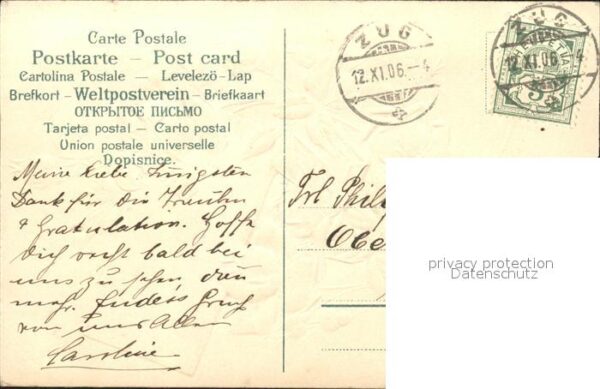 Carte Postale
Postkarte — Post card
Cartolina Postale — Levelezö-Lap
Brefkort - Weltpostverein - Briefkaart
ОТКРЫТОЕ ПИСЬМО
Tarjeta postal — Carto postal
Union postale universelle
Dopisnice.
Meine liebe Innigsten
Dank für die
& Gratulation. Hoffe
Dich recht bald bei
uns zu sehen
Gruß
von uns Allen
Caroline
ZUG
12.XI.06.-4
ZUG
12.XI.06-4
HELVETIA
5
Frl Phil
Obe
privacy protection
Datenschutz